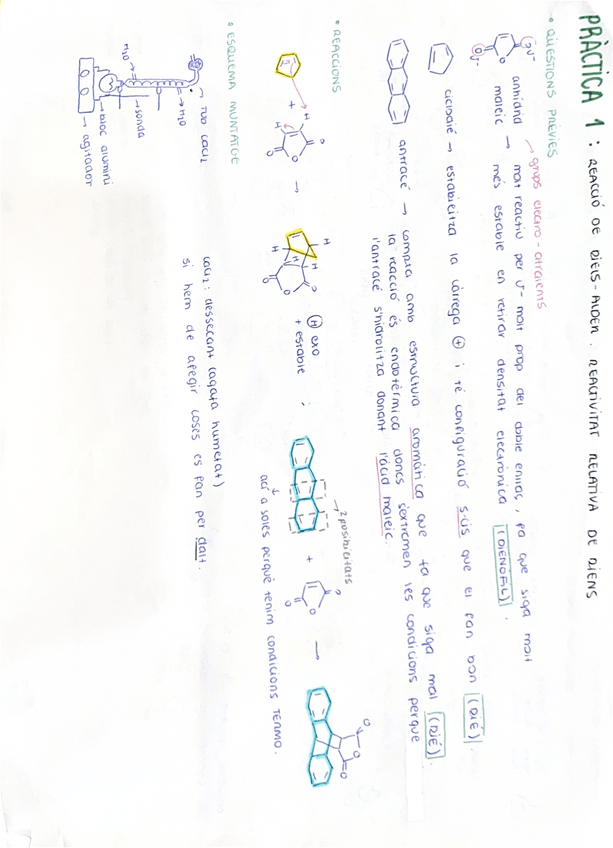 PRÀCTICA 1 : REACCIÓ DE DIELS-ALDER. REACTIVITAT RELATIVA DE DIENS
• QÜESTIONS PRÈVIES
→ grups electro-atraients
anhidrid → molt reactiu per δ- molt prop del doble enllaç, fa que siga molt
maleic més estable en retirar densitat electrònica (DIENÒFIL).
ciclodié → estabilitza la càrrega ⊕ i té configuració s-cis que el fan bon (DIÉ).
antracé → compta amb estructura aromàtica que fa que siga mal (DIÉ).
la reacció és endotèrmica doncs s'extremen les condicions perque
l'antracé s'hidrolitza donant l'àcid maleic.
• REACCIONS
+ → Ⓗ exo
+ estable
;
→ 2 posibilitats
+ →
ací a soles perquè tenim condicions TERMO.
• ESQUEMA MUNTATGE
→ TUB CaCl2
H2O
→ H2O
→ sonda
→ bloc alumini
→ agitador
CaCl2: dessecant (agafa humetat)
si hem de afegir coses es fan per dalt.